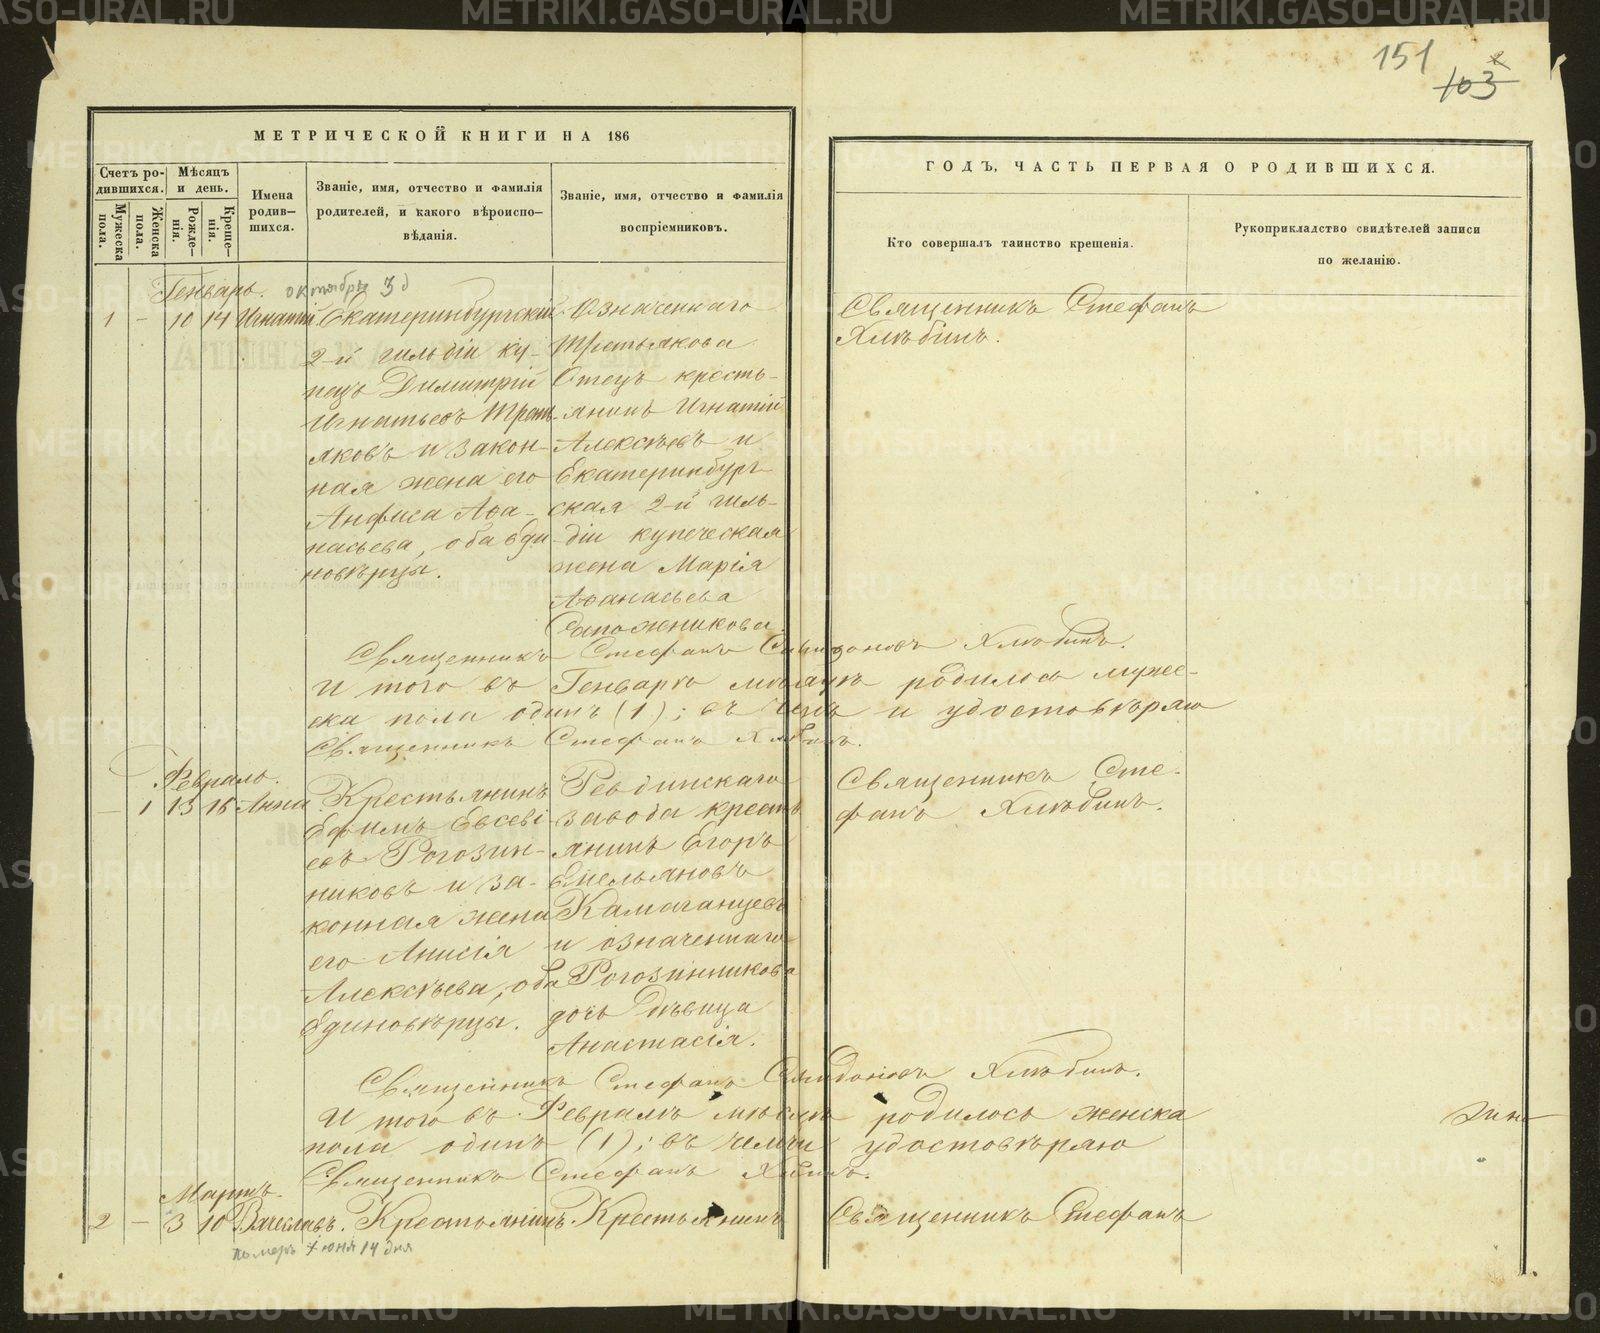 151
103
МЕТРИЧЕСКОЙ КНИГИ НА 186
Счетъ ро-
дившихся.
Мужеска пола.
Женска пола.
Мѣсяцъ
и день.
Рожде-
нія.
Креще-
нія.
Имена
родив-
шихся.
Званіе, имя, отчество и фамилія
родителей, и какого вѣроиспо-
вѣданія.
Званіе, имя, отчество и фамилія
воспріемниковъ.
ГОДЪ, ЧАСТЬ ПЕРВАЯ О РОДИВШИХСЯ.
Кто совершалъ таинство крещенія.
Рукоприкладство свидѣтелей записи
по желанію.
Генварь.
октября 3д
1 – 10 14 Игнатій
Екатеринбургскій
2-й гильдіи ку-
пецъ Димитрій
Игнатьевъ Треть-
яковъ и закон-
ная жена его
Анфиса Аѳа-
насьева, оба еди-
новѣрцы.
Означеннаго
Третьякова
Отецъ кресть-
янинъ Игнатій
Алексѣевъ и
Екатеринбург-
ская 2-й гиль-
діи купеческая
жена Марія
Аѳанасьева
Сапожникова.
Священникъ Стефанъ
Хлѣбинъ.
Священникъ Стефанъ Спиридоновъ Хлѣбинъ.
И того въ Генварѣ мѣсяцѣ родилось муже-
ска пола одинъ (1); въ чемъ и удостовѣряю
Священникъ Стефанъ Хлѣбинъ.
Февраль.
– 1 13 16 Анна
Крестьянинъ
Ефимъ Евсеві-
евъ Рогозин-
никовъ и за-
конная жена
его Анисія
Алексѣева, оба
Единовѣрцы.
Ревдинскаго
завода кресть-
янинъ Егоръ
Емельяновъ
Камаганцевъ
и означеннаго
Рогозинникова
дочь дѣвица
Анастасія.
Священникъ Сте-
фанъ Хлѣбинъ.
Священникъ Стефанъ Спиридоновъ Хлѣбинъ.
И того въ Февралѣ мѣсяцѣ родилось женска
пола одинъ (1); въ чемъ удостовѣряю
Священникъ Стефанъ Хлѣбинъ.
Мартъ.
2 – 3 10 Вячеславъ.
Крестьянинъ
Крестьянинъ
Священникъ Стефанъ
померъ Іюня 14 дня
METRIKI.GASO-URAL.RU